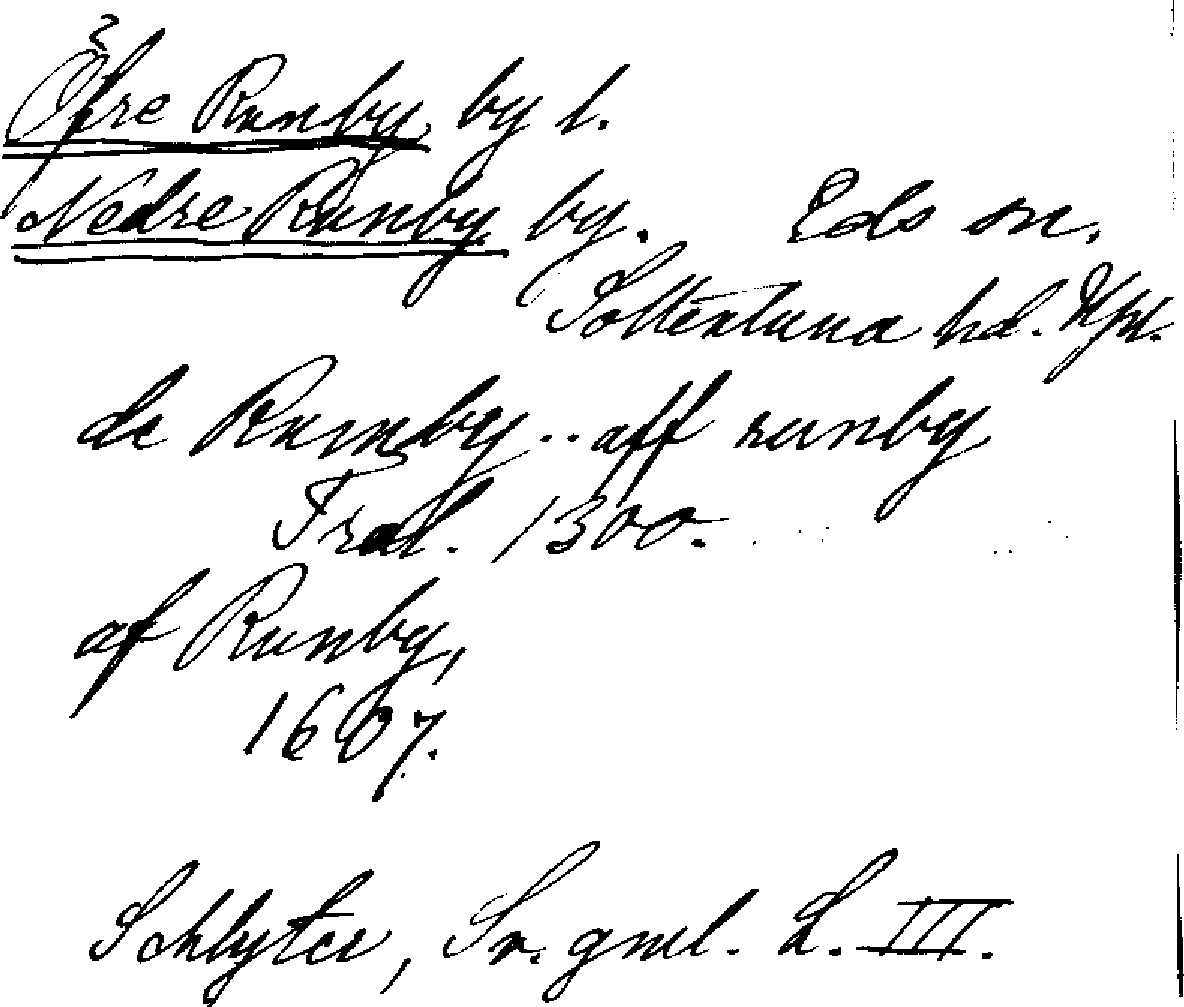 Öfre Runby by l.
Nedre Runby by. Eds sn.
Sollentuna hd. Upl.
de Rumby .. aff runby
Tral. 1300.
af Runby,
1607.
Schlyter, Sv. gml. L. III.